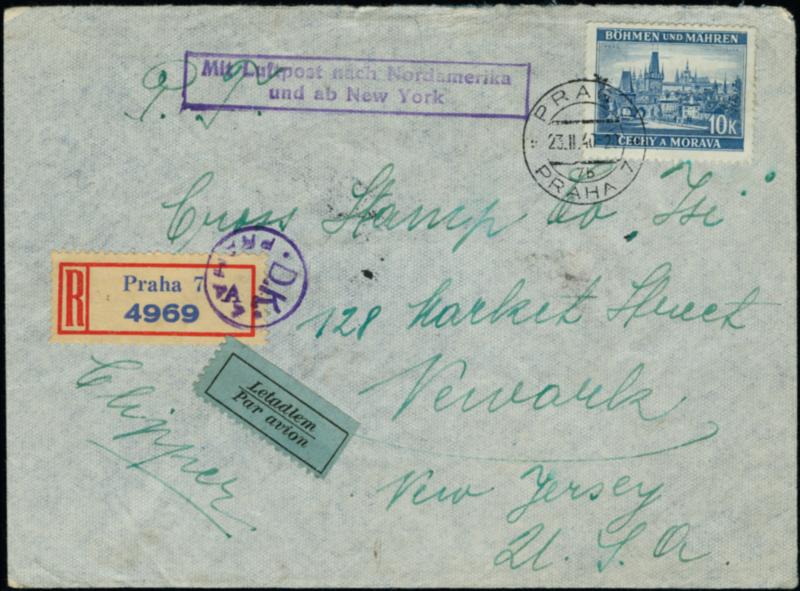 Mit Luftpost nach Nordamerika
und ab New York
BÖHMEN UND MÄHREN
10K
ČECHY A MORAVA
PRAG 7
23.II.40
7b
PRAHA 7
Cross Stamp Co
128 Market Street
Newark
New Jersey
U.S.A
R
Praha 7
4969
D.K.
Letadlem
Par avion
Clipper